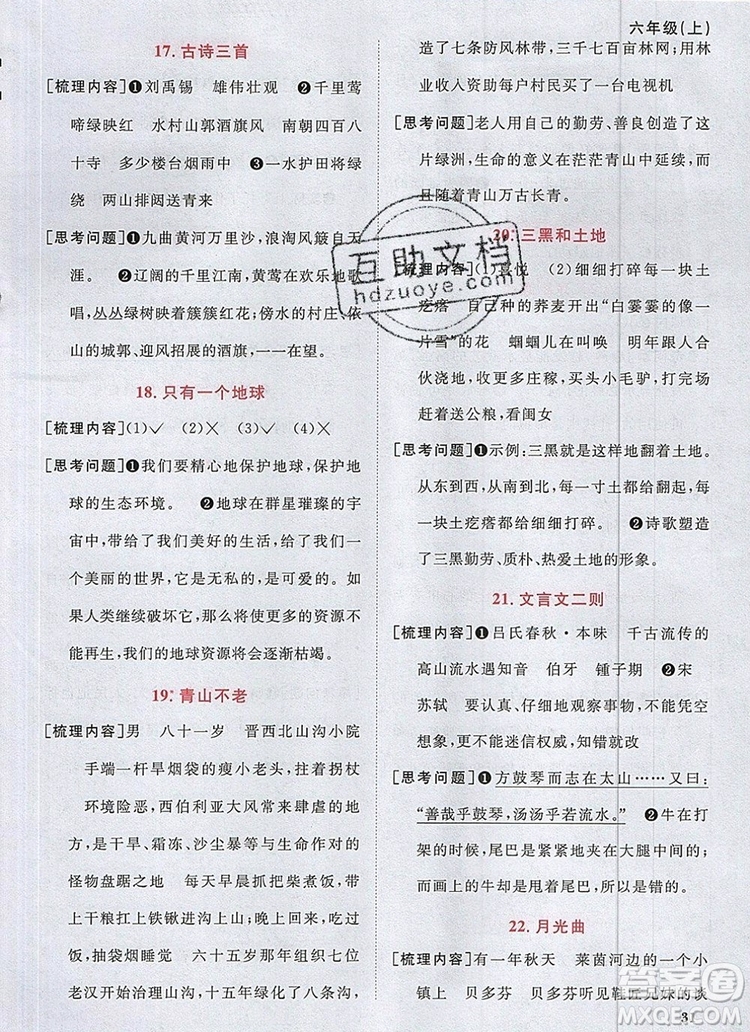 六年级(上)
17. 古诗三首
[梳理内容]❶刘禹锡 雄伟壮观 ❷千里莺
啼绿映红 水村山郭酒旗风 南朝四百八
十寺 多少楼台烟雨中 ❸一水护田将绿
绕 两山排闼送青来
[思考问题]❶九曲黄河万里沙，浪淘风簸自天
涯。 ❷辽阔的千里江南，黄莺在欢乐地歌
唱，丛丛绿树映着簇簇红花；傍水的村庄、依
山的城郭、迎风招展的酒旗，一一在望。
18. 只有一个地球
[梳理内容](1)✓ (2)✕ (3)✓ (4)✕
[思考问题]❶我们要精心地保护地球，保护地球
的生态环境。 ❷地球在群星璀璨的宇
宙中，带给了我们美好的生活，带给我们一
个美丽的世界，它是无私的，是可爱的。如
果人类继续破坏它，那么将使更多的资源不
能再生，我们的地球资源将会逐渐枯竭。
19. 青山不老
[梳理内容]男 八十一岁 晋西北山沟小院
手端一杆旱烟袋的瘦小老头，挂着拐杖
环境险恶，西伯利亚大风常来肆虐的地方，
是干旱、霜冻、沙尘暴等与生命作对的
怪物盘踞之地 每天早晨抓把柴煮饭，带上
干粮扛上铁锹进沟上山；晚上回来，吃过
饭，抽袋烟睡觉 六十五岁那年组织七位
老汉开始治理山沟，十五年绿化了八条沟，
造了七条防风林带，三千七百亩林网；用林
业收入资助每户村民买了一台电视机
[思考问题]老人用自己的勤劳、善良创造了这
片绿洲，生命的意义在茫茫青山中延续，而
且随着青山万古长青。
20. 三黑和土地
[梳理内容](1)喜悦 (2)细细打碎每一块土
疙瘩 自己种的荞麦开出“白霎霎的像一
片雪”的花 蝈蝈儿在叫唤 明年跟人家合
伙浇地；收庄稼、买头小毛驴，打完场、
赶着送公粮，看闺女
[思考问题]❶示例：三黑就是这样地翻着土地。
从东到西，从南到北，每一寸土都给翻起，每
一块土疙瘩都给细细打碎。 ❷诗歌塑造
了三黑勤劳、质朴、热爱土地的形象。
21. 文言文二则
[梳理内容]❶吕氏春秋·本味 千古流传的
高山流水遇知音 伯牙 锺子期 ❷宋
苏轼 要认真、仔细地观察事物，不能凭空
想象，更不能迷信权威，知错就改
[思考问题]❶方鼓琴而志在太山……又曰：
“善哉乎鼓琴，汤汤乎若流水。” ❷牛在打
架的时候，尾巴是紧紧地夹在大腿中间的，
而画上的牛却是甩着尾巴，所以画错了。
22. 月光曲
[梳理内容]有一年秋天 莱茵河边的一个小
镇上 贝多芬 贝多芬听见鞋匠兄妹的谈
31
互助文档
hdzuoye.com
答案圈
MXQE.COM